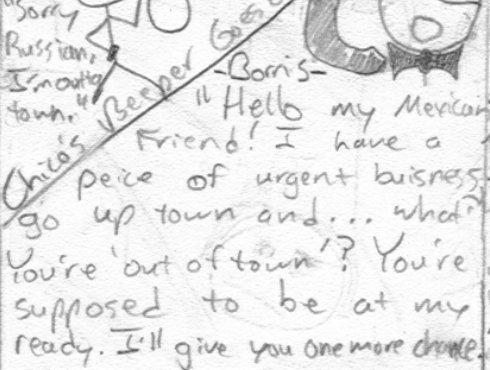 "Sorry
Russian,
I'm outta
town."
Chico's Beeper Goes
-Borris-
"Hello my Mexican
Friend! I have a
peice of urgent buisness
go up town and... what?
You're 'out of town'? You're
supposed to be at my
ready. I'll give you one more chance.